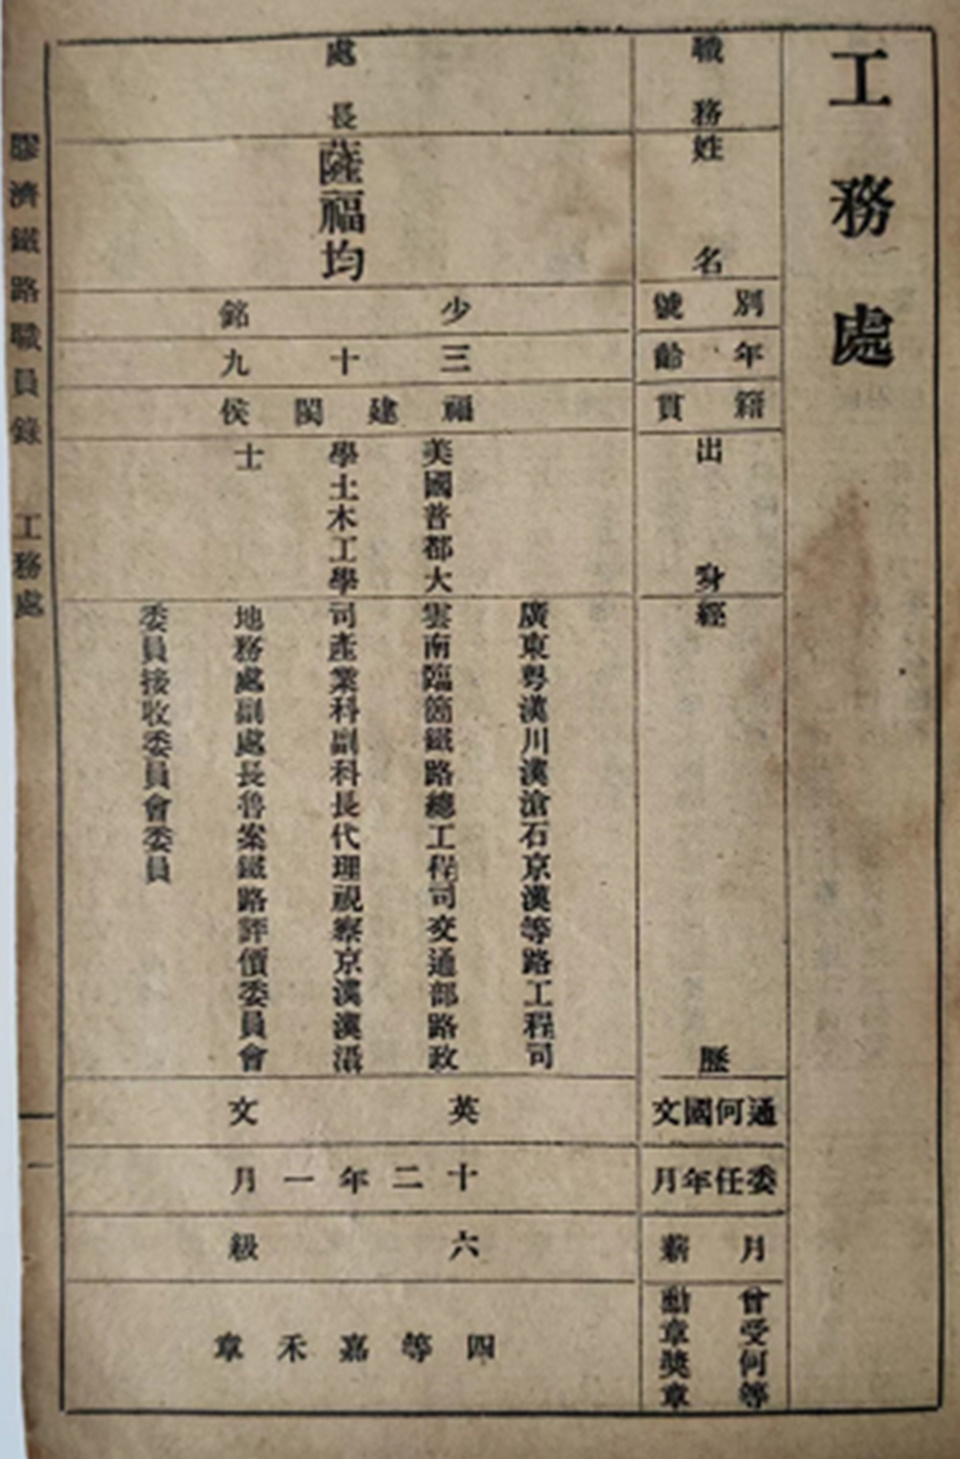 工務處
職務
姓名
別號
年齡
籍貫
出身
經歷
通何國文
委任年月
月薪
曾受何等
勳章獎章
處長
薩福均
少銘
三十九
福建閩侯
美國普都大
學土木工學
士
廣東粵漢川漢滄石京漢等路工程司
雲南臨箇鐵路總工程司交通部路政
司產業科副科長代理視察京漢漢滬
地務處副處長魯案鐵路評價委員會
委員接收委員會委員
英文
十二年一月
六級
四等嘉禾章
膠濟鐵路職員錄 工務處
一